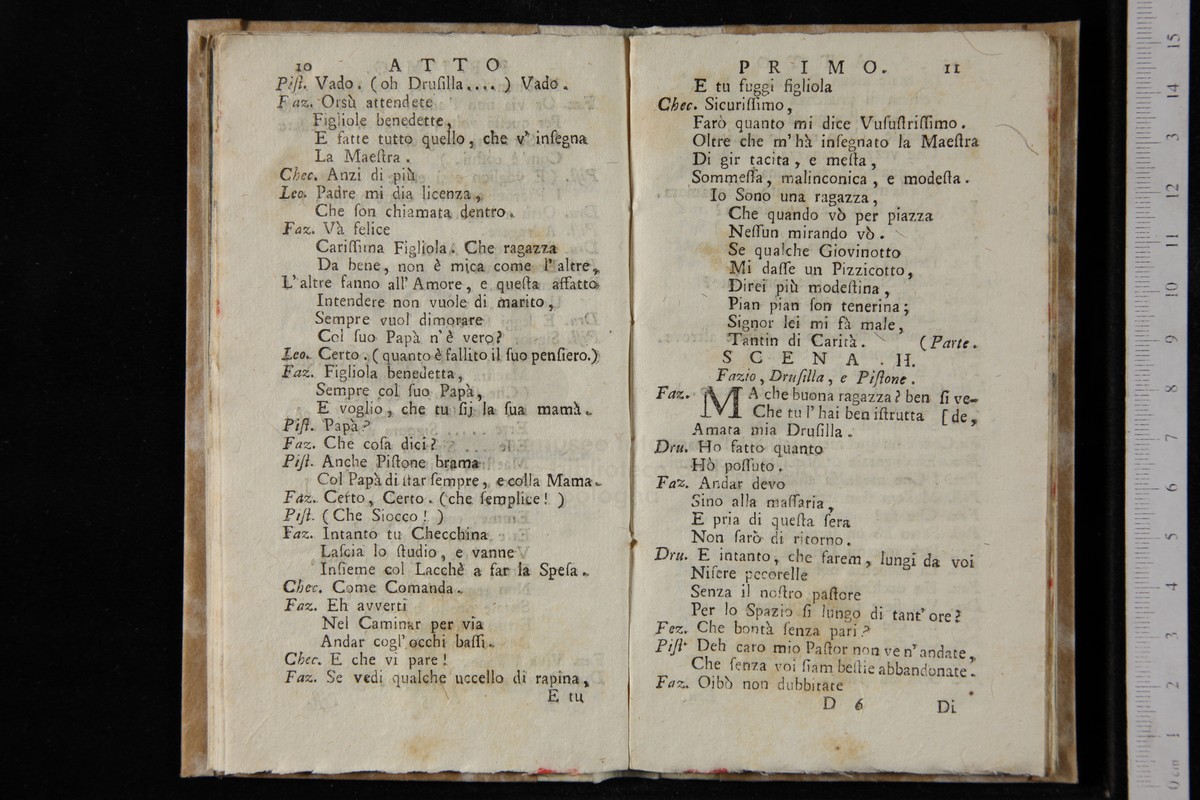 10 ATTO
Pist. Vado. (oh Drusilla....) Vado.
Faz. Orsù attendete
Figliole benedette,
E fatte tutto quello, che v' insegna
La Maestra.
Chec. Anzi di più
Leo. Padre mi dia licenza,
Che son chiamata dentro.
Faz. Và felice
Carissima Figliola. Che ragazza
Da bene, non è mica come l' altre,
L' altre fanno all' Amore, e questa affatto
Intendere non vuole di marito,
Sempre vuol dimorare
Col suo Papà n' è vero?
Leo. Certo. (quanto è fallito il suo pensiero.)
Faz. Figliola benedetta,
Sempre col suo Papà,
E voglio, che tu sij la sua mamà.
Pist. Papà?
Faz. Che cosa dici?
Pist. Anche Pistone brama
Col Papà di star sempre, e colla Mama.
Faz. Certo, Certo. (che semplice! )
Pist. (Che Siocco! )
Faz. Intanto tu Checchina
Lascia lo studio, e vanne
Insieme col Lacchè a far la Spesa.
Chec. Come Comanda.
Faz. Eh avverti
Nel Caminar per via
Andar cogl' occhi bassi.
Chec. E che vi pare!
Faz. Se vedi qualche uccello di rapina,
E tu
PRIMO. 11
E tu fuggi figliola
Chec. Sicurissimo,
Farò quanto mi dice Vusustrissimo.
Oltre che m' hà insegnato la Maestra
Di gir tacita, e mesta,
Sommessa, malinconica, e modesta.
Io Sono una ragazza,
Che quando vò per piazza
Nessun mirando vò.
Se qualche Giovinotto
Mi dasse un Pizzicotto,
Direi più modestina,
Pian pian son tenerina;
Signor lei mi fà male,
Tantin di Carità. (Parte.
SCENA. II.
Fazio, Drusilla, e Pistone.
Faz. MA che buona ragazza? ben si ve-
Che tu l' hai ben istrutta [de,
Amata mia Drusilla.
Dru. Ho fatto quanto
Hò possuto.
Faz. Andar devo
Sino alla massaria,
E pria di questa sera
Non farò di ritorno.
Dru. E intanto, che farem, lungi da voi
Nisere pecorelle
Senza il nostro pastore
Per lo Spazio sì lungo di tant' ore?
Fez. Che bontà senza pari?
Pist. Deh caro mio Pastor non ve n' andate,
Che senza voi siam bestie abbandonate.
Faz. Oibò non dubbitate
D 6 Di